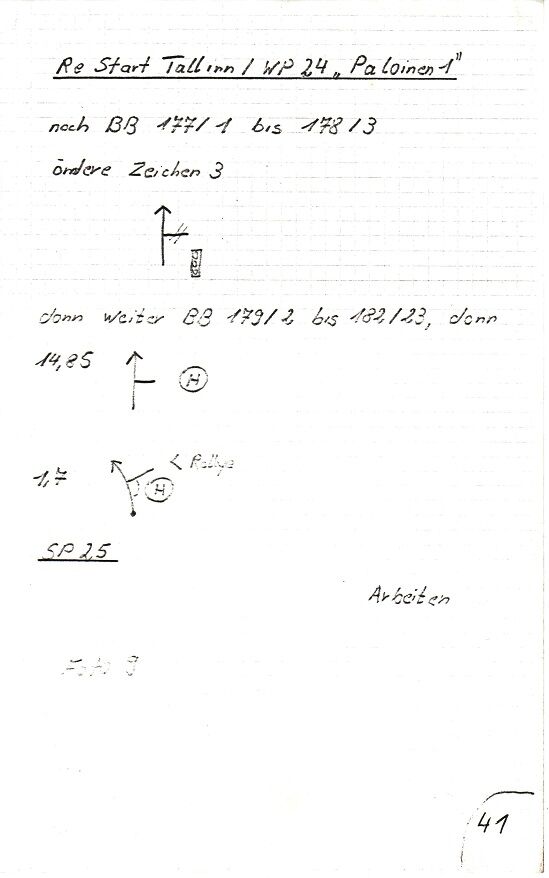 Re Start Tallinn / WP 24 „Paloinen 1"
nach BB 177/1 bis 178/3
ändere Zeichen 3
dann weiter BB 179/2 bis 182/23, dann
14,85 H
< Rallye
1,7 H
SP 25
Arbeiten
Foto 9
41